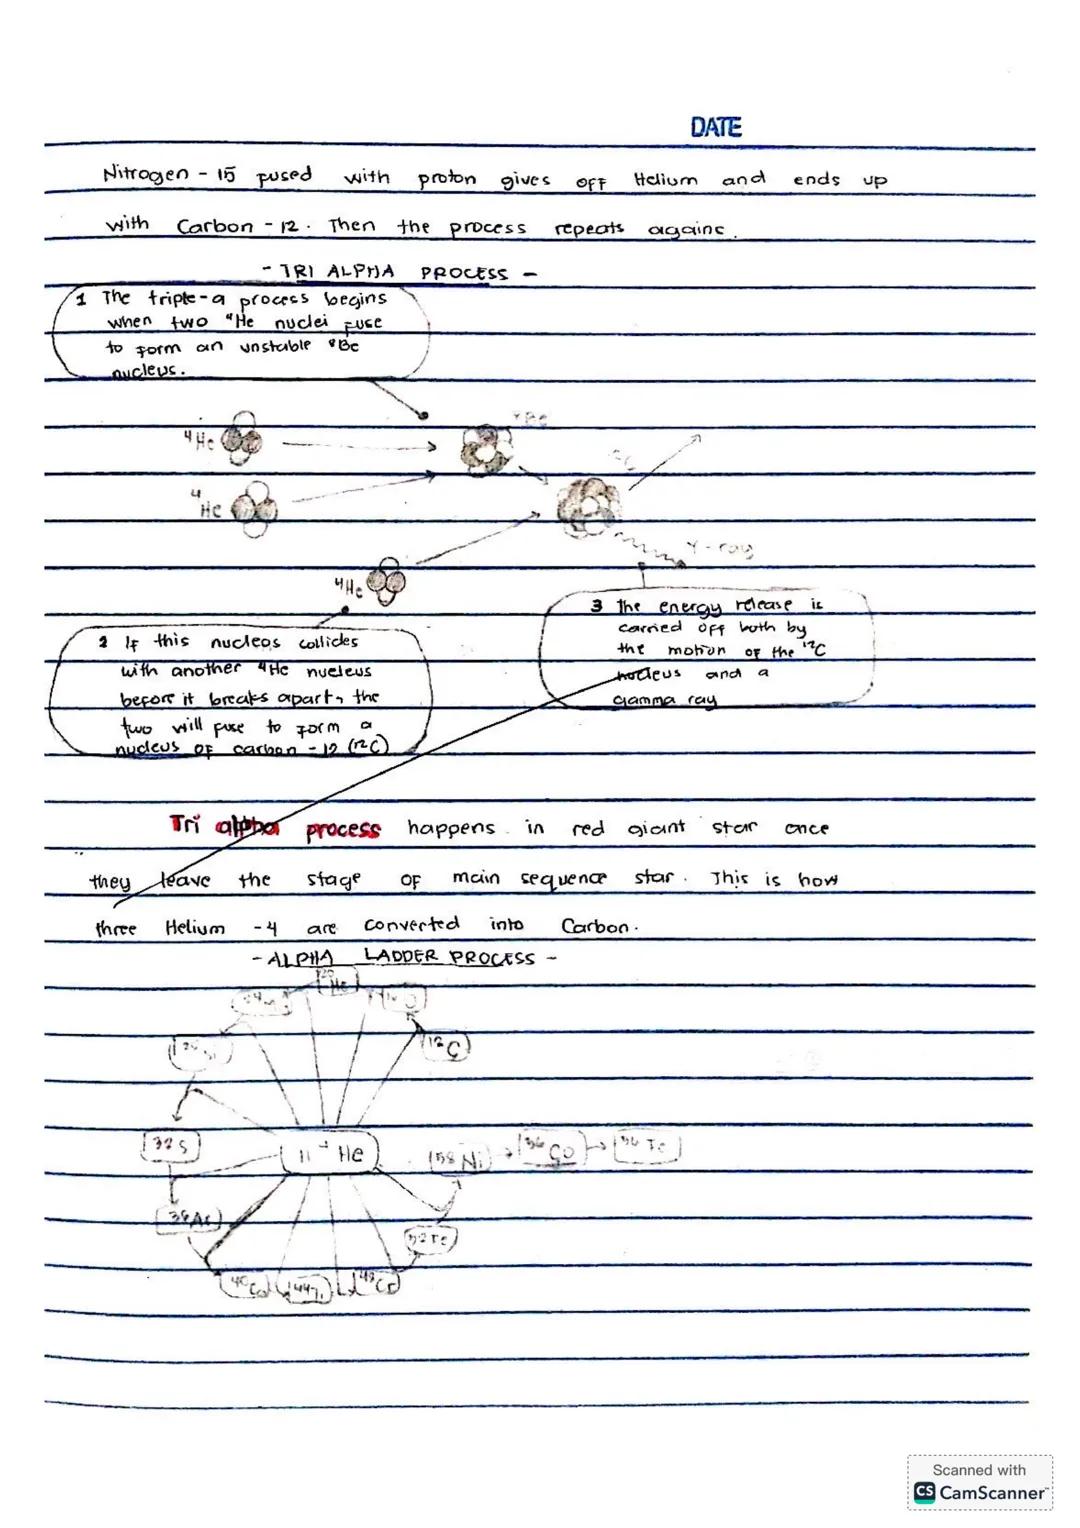 DATE
Nitrogen - 15 fused with proton gives off Helium and ends up
with Carbon - 12. Then the process repeats againc.
- TRI ALPHA PROCESS -
1 The triple-a process begins
when two ⁴He nuclei fuse
to form an unstable ⁸Be
nucleus.
⁴He
⁴He
⁴He
γ-ray
2 If this nucleos collides
with another ⁴He nucleus
before it breaks apart, the
two will fuse to form a
nucleus of carbon - 12 (¹²C)
3 The energy release is
carried off both by
the motion of the ¹²C
nucleus and a
gamma ray
Tri alpha process happens in red giant star once
they leave the stage of main sequence star. This is how
three Helium - 4 are converted into Carbon.
- ALPHA LADDER PROCESS -
¹²C
32S
He
58 Ni
56 Co
52Fe
40Ca
44Ti
48Cr
Scanned with
CS CamScanner